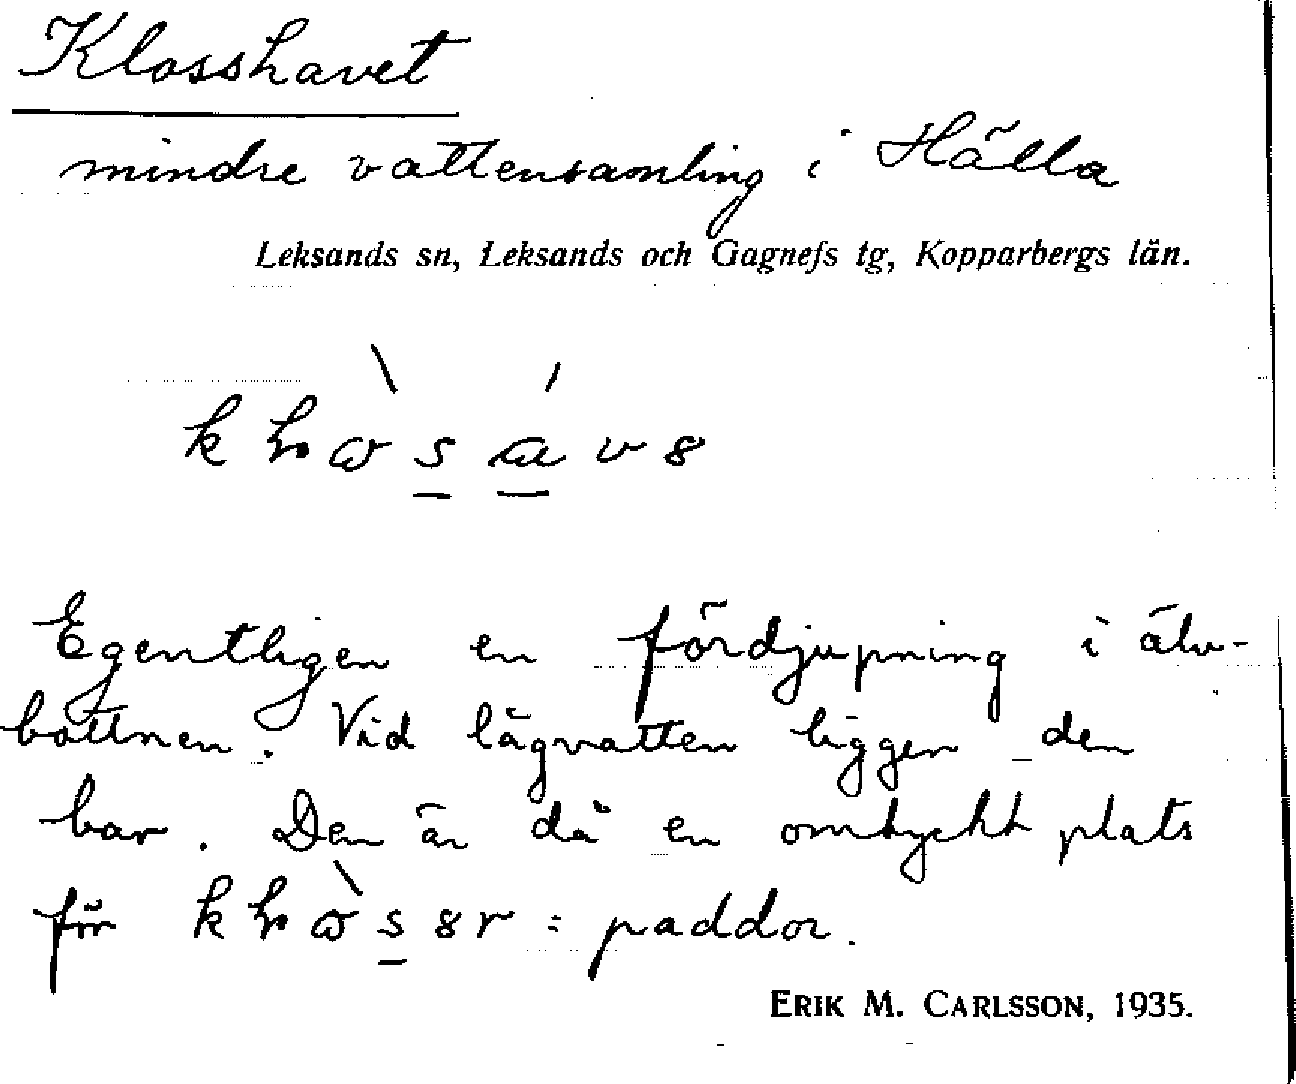 Klosshavet
mindre vattensamling i Hälla
Leksands sn, Leksands och Gagnefs tg, Kopparbergs län.
Egentligen en fördjupning i älv-
bottnen. Vid lågvatten ligger den
bar. Den är då en omtyckt plats
för = paddor.
ERIK M. CARLSSON, 1935.